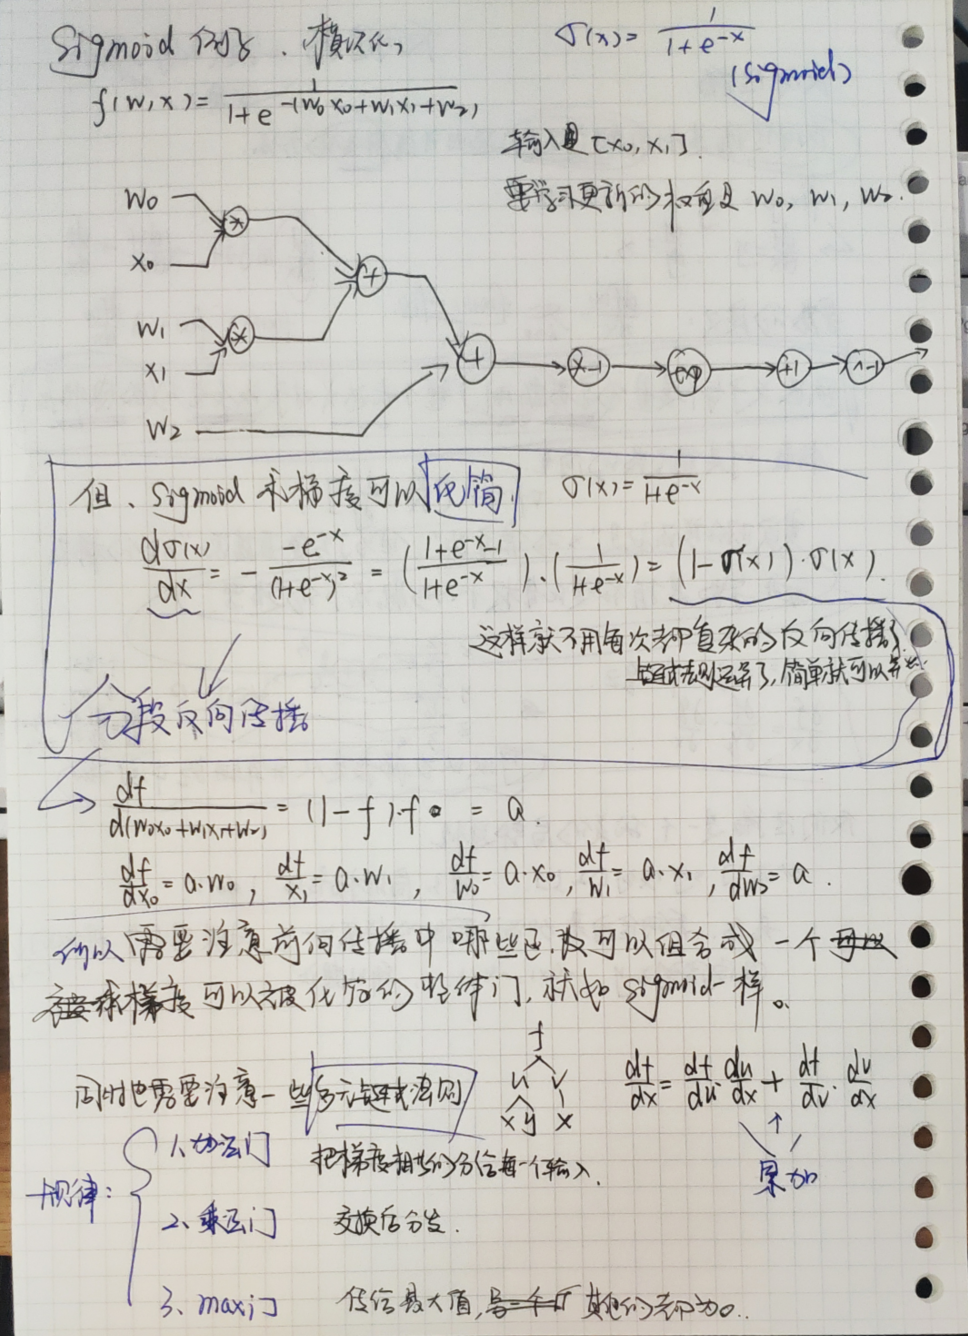 Sigmoid 例子、模块化,
σ(x) = 1 / (1+e^-x)
(sigmoid)
f(w,x) = 1 / (1+e^-(w0x0+w1x1+w2))
输入是 [x0, x1].
需学习更新的权重是 w0, w1, w2.
w0
*
x0
+
w1
*
x1
+ ×-1 exp +1 ^-1
w2
但、Sigmoid 求梯度可以化简. σ(x) = 1 / (1+e^-x)
dσ(x)/dx = - -e^-x / (1+e^-x)^2 = ((1+e^-x-1) / (1+e^-x)) · (1 / (1+e^-x)) = (1-σ(x))·σ(x).
这样就不用每次都即复杂的反向传播了
链式法则运算了,简单就可以
分段反向传播
df / d(w0x0+w1x1+w2) = (1-f)·f = a.
df/dx0 = a·w0, df/x1 = a·w1, df/w0 = a·x0, df/w1 = a·x1, df/dw2 = a.
所以需要注意前向传播中哪些 可以组合成一个
梯度可以被化简的整体门,就如 sigmoid 一样。
f
u v
x y x
df/dx = df/du · du/dx + df/dv · dv/dx
同时也需要注意一些多元链式法则
累加
规律:
1、加法门 把梯度相等的分给每一个输入.
2、乘法门 交换后分发.
3、max门 传给最大值, 其他的都为0.